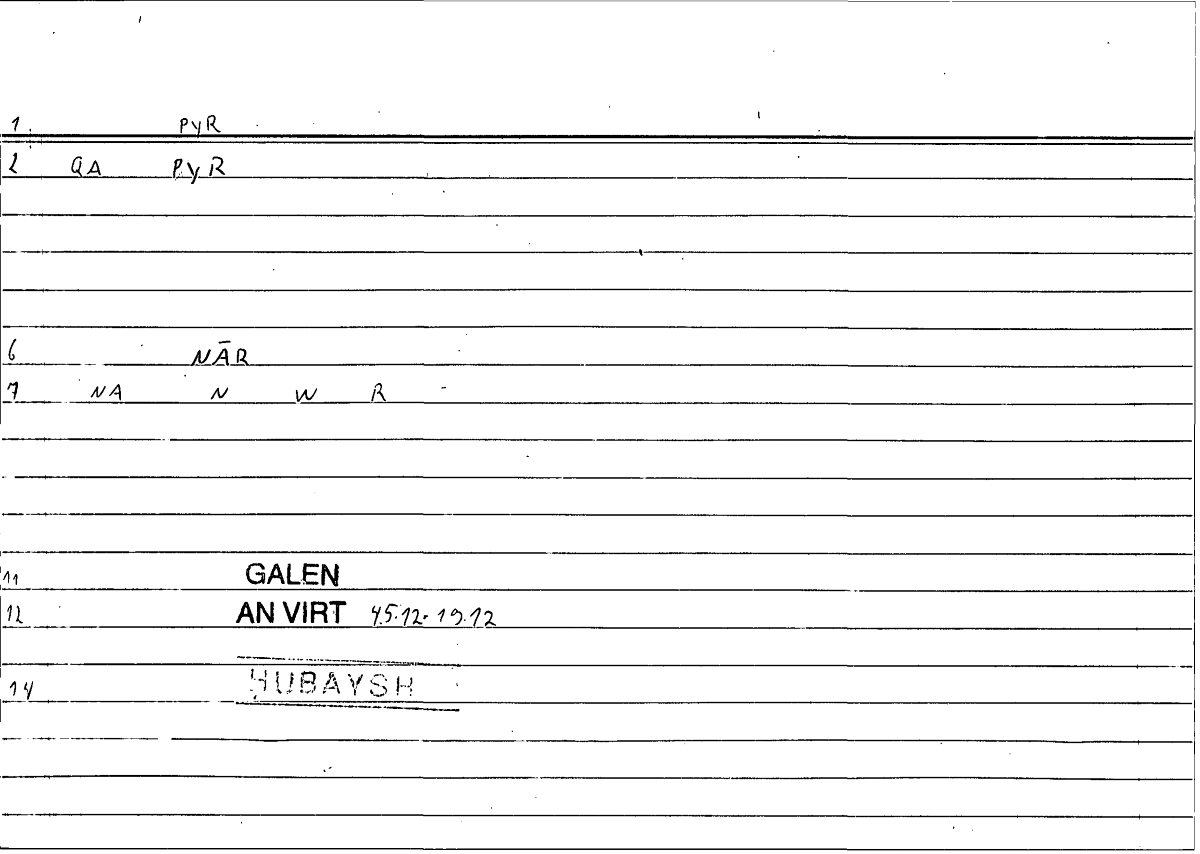 1 PyR
2 QA PyR
6 NĀR
7 NA N W R
11 GALEN
12 AN VIRT 45.12-19.12
14 ḤUBAYSH